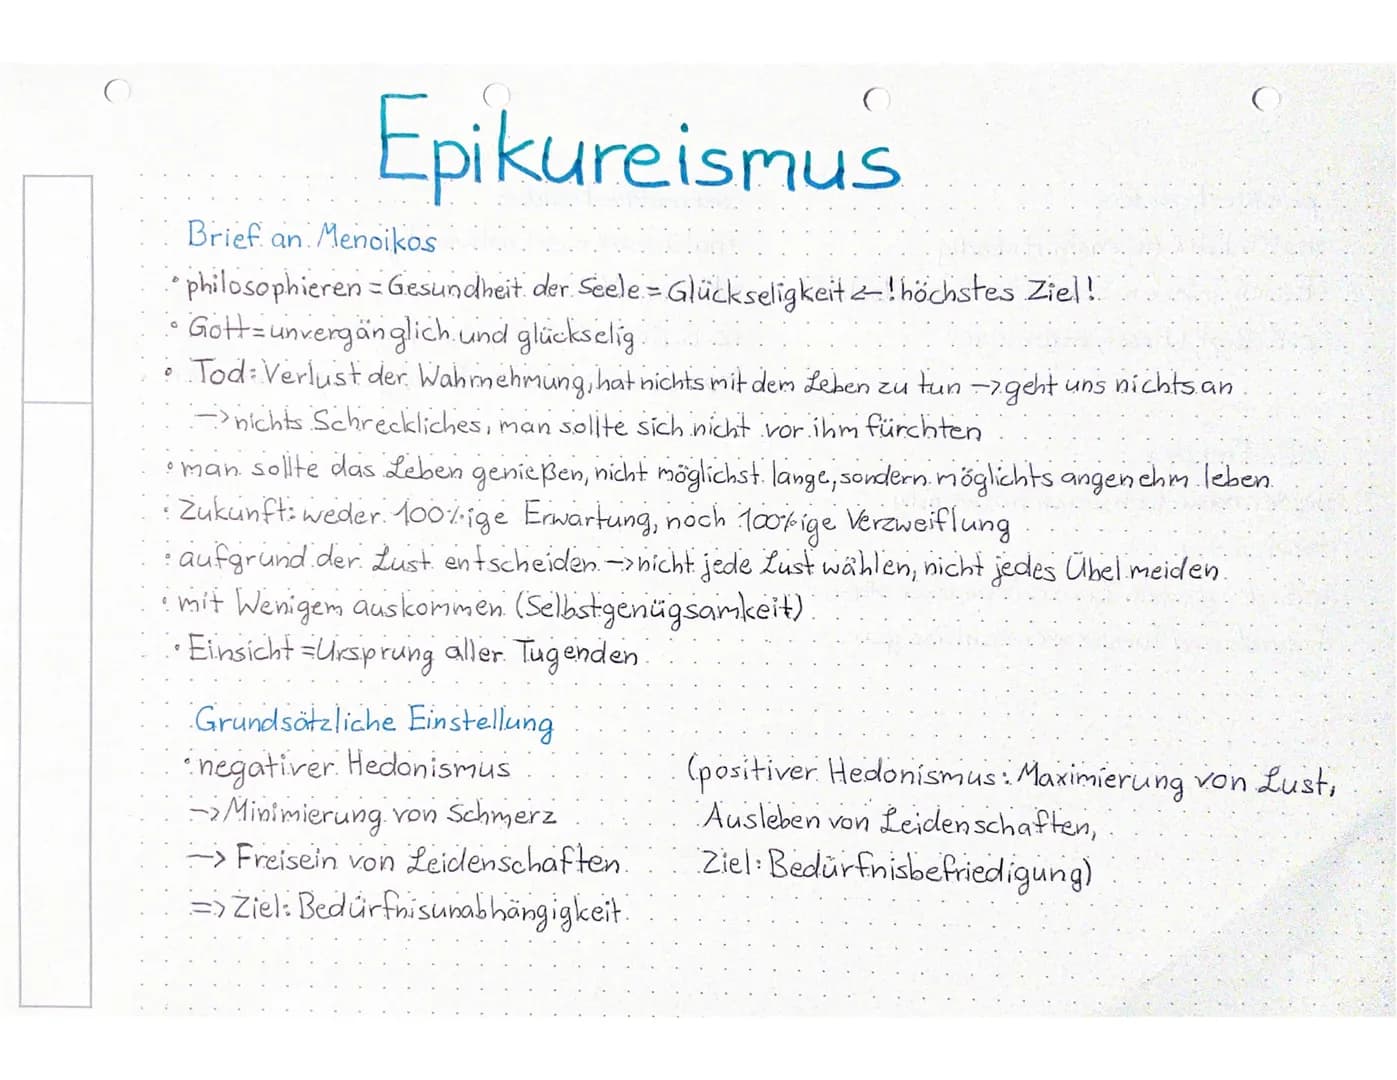 Epikureismus
Brief an Menoikos
• philosophieren = Gesundheit der Seele = Glückseligkeit <-! höchstes Ziel!
• Gott = unvergänglich und glückselig
• Tod: Verlust der Wahrnehmung, hat nichts mit dem Leben zu tun -> geht uns nichts an
-> nichts Schreckliches, man sollte sich nicht vor ihm fürchten
• man sollte das Leben genießen, nicht möglichst lange, sondern möglichts angenehm leben
• Zukunft: weder 100%ige Erwartung, noch 100%ige Verzweiflung
• aufgrund der Lust entscheiden -> nicht jede Lust wählen, nicht jedes Übel meiden
• mit Wenigem auskommen (Selbstgenügsamkeit)
• Einsicht = Ursprung aller Tugenden
Grundsätzliche Einstellung
• negativer Hedonismus
-> Minimierung von Schmerz
-> Freisein von Leidenschaften
=> Ziel: Bedürfnisunabhängigkeit
(positiver Hedonismus: Maximierung von Lust,
Ausleben von Leidenschaften,
Ziel: Bedürfnisbefriedigung)